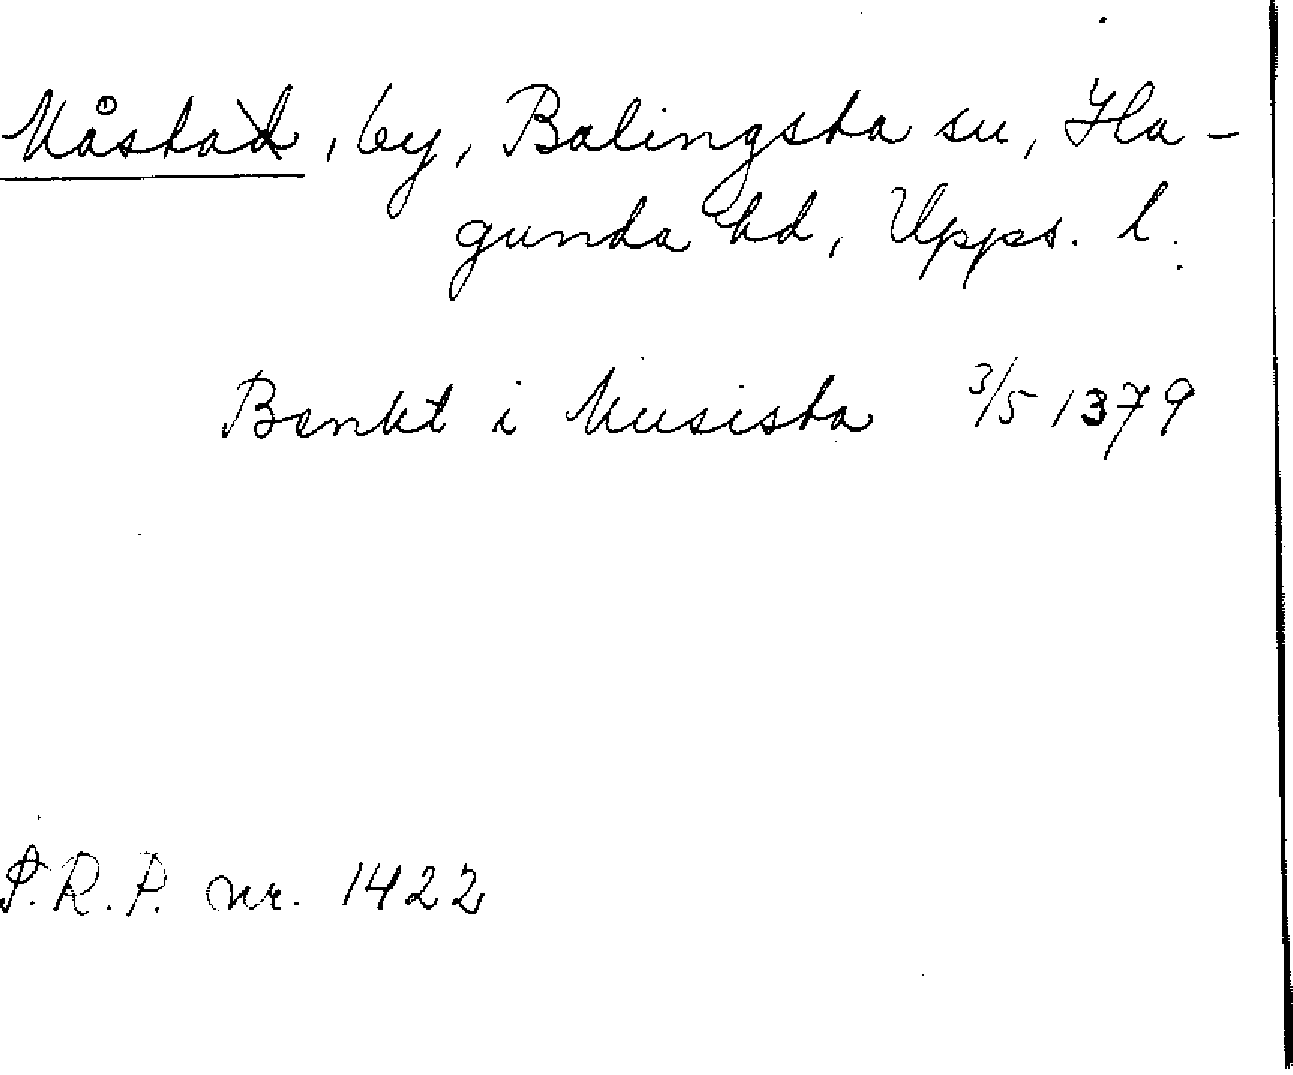 Måsta, by, Balingsta sn, Ha-
gunda hd, Upps. l.
Benkt i Musista 3/5 1379
S.R.P. nr. 1422